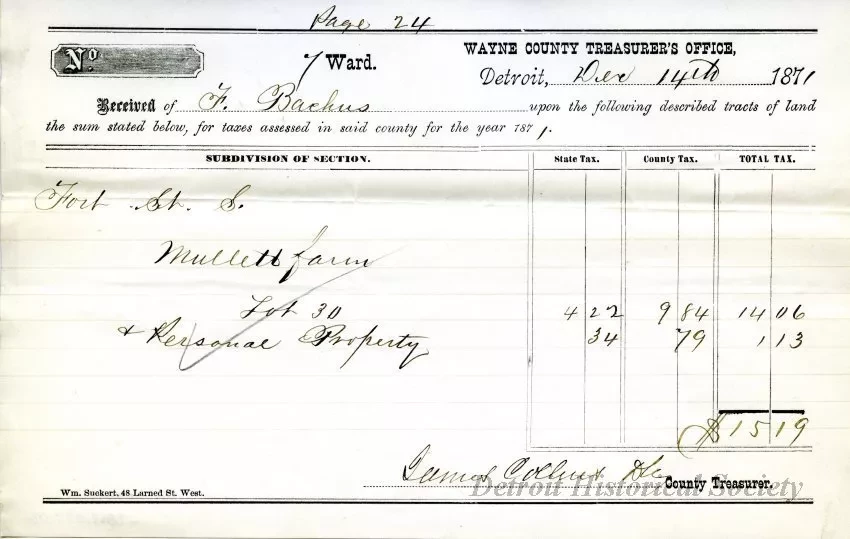 Page 24
No.
7 Ward.
WAYNE COUNTY TREASURER'S OFFICE,
Detroit, Dec 14th 1871
Received of F. Bachus upon the following described tracts of land
the sum stated below, for taxes assessed in said county for the year 1871.
SUBDIVISION OF SECTION. State Tax. County Tax. TOTAL TAX.
Fort St. S.
Mullett farm
Lot 30 4 22 9 84 14 06
& Personal Property 34 79 1 13
$15 19
James Collins County Treasurer.
Detroit Historical Society
Wm. Suckert, 48 Larned St. West.